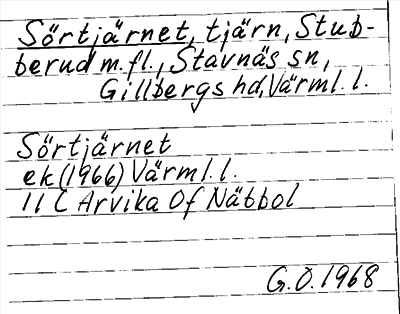 Sörtjärnet, tjärn, Stub-
berud m.fl., Stavnäs sn,
Gillbergs hd, Värml. l.
Sörtjärnet
ek (1966) Värml. l.
11 C Arvika Of Näbbol
G.O. 1968